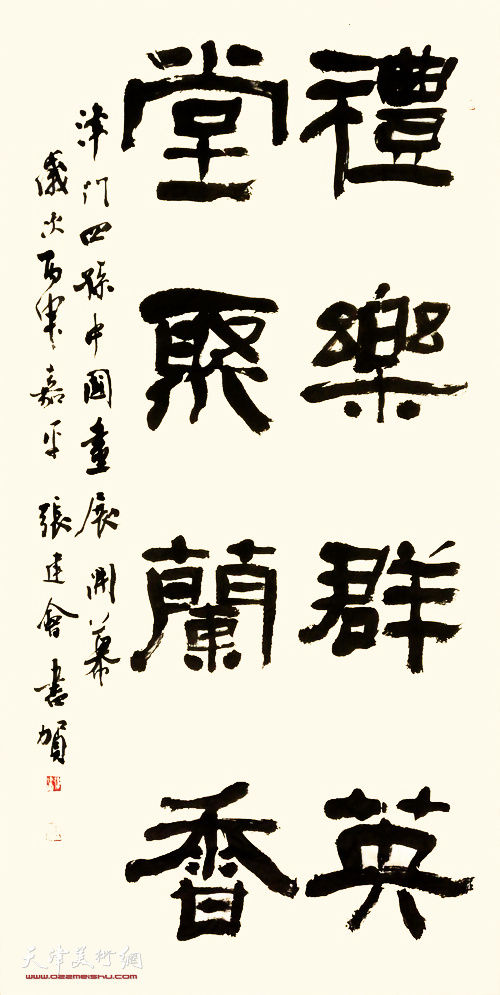 禮樂群英
堂聚蘭香
津門四孫中國畫展開幕
歲次丙申嘉平 張建會書賀
天津美術網
www.022meishu.com